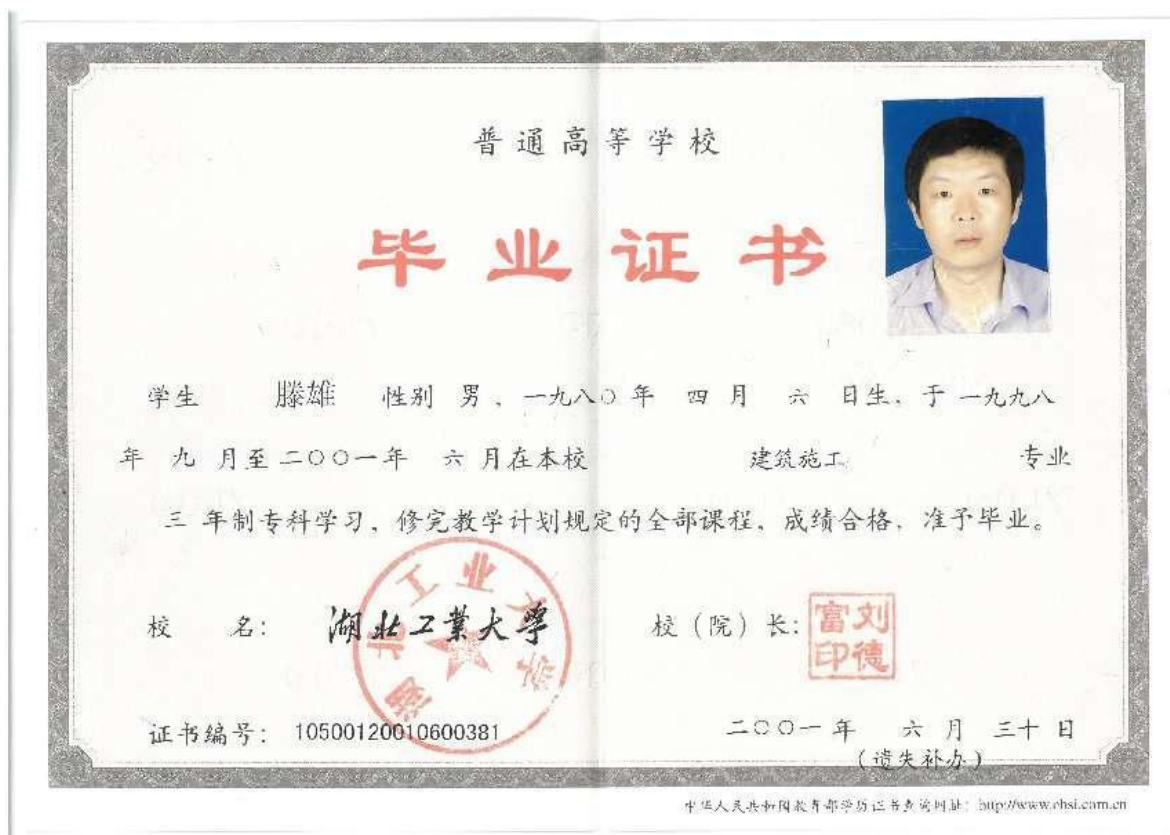 普通高等学校
毕业证书
学生 滕雄 性别 男，一九八〇年 四 月 六 日生，于 一九九八
年 九 月至 二〇〇一年 六 月在本校 建筑施工 专业
三 年制专科学习，修完教学计划规定的全部课程，成绩合格，准予毕业。
校 名： 湖北工業大學
湖北工业大学
校（院）长：
刘德富印
证书编号： 10500120010600381
二〇〇一年 六 月 三十 日
（遗失补办）
中华人民共和国教育部学历证书查询网址：http://www.chsi.com.cn